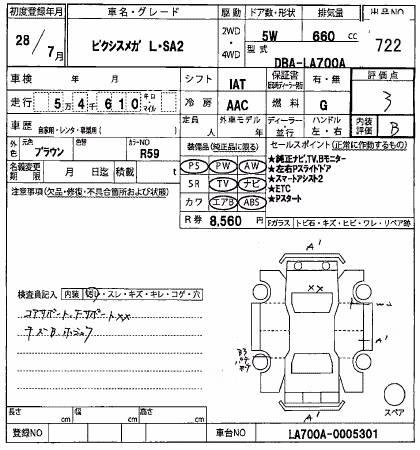 初度登録年月 車名・グレード 駆動 ドア数・形状 排気量 出品NO
28/7月 ピクシスメガ L・SA2 2WD・4WD 5W 660 cc 722
型式 DBA-LA700A
車検 年 月 シフト IAT 保証書 有・無 評価点
走行 5万4千610 キロ・マイル 冷房 AAC 燃料 G 3
車歴 自家用・レンタ・事業用( ) 定員 人 外車モデル 年 ディーラー・並行 ハンドル 左・右 内装評価 B
外色 元色 ブラウン 色替 カラーNO R59 装備品(純正品に限る) セールスポイント(正常に作動するもの)
名義変更期限 月 日迄 積載 t PS PW AW ★純正ナビ,TV,Bモニター
注意事項(欠品・修復・不具合箇所および状態) SR TV ナビ ★左右Pスライドドア
★スマートアシスト2
カワ エアB ABS ★ETC
★Pスタート
R券 8,560円 Fガラス トビ石・キズ・ヒビ・ワレ・リペア跡
A'
検査員記入 内装 汚レ・スレ・キズ・キレ・コゲ・穴
コアサポート,
××
キズB
A'
スペア
A'
長さ cm 幅 cm 高さ cm
登録NO 車台NO LA700A-0005301